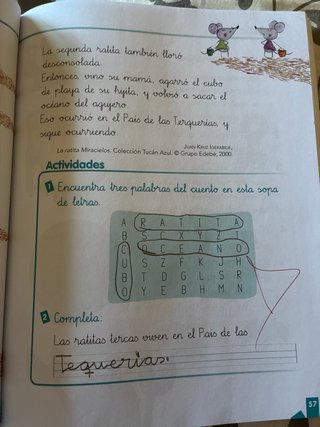 La segunda ratita también lloró
desconsolada.
Entonces, vino su mamá, agarró el cubo
de playa de su hijita, y volvió a sacar el
océano del agujero.
Eso ocurrió en el País de las Terquerías, y
sigue ocurriendo.
JUAN KRUZ IGERABIDE,
La ratita Miracielos. Colección Tucán Azul. © Grupo Edebé, 2000.
Actividades
1 Encuentra tres palabras del cuento en esta sopa
de letras.
A R A T I T A
O C E A N O
C S Z F K J H
B T D G L S R
O Y E B H M N
2 Completa:
Las ratitas tercas viven en el País de las
Tequerías.
57